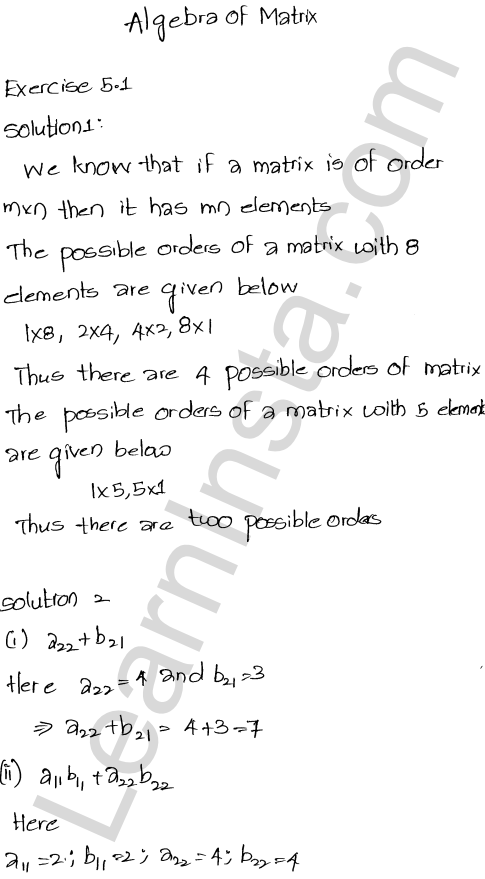 Algebra of Matrix
Exercise 5.1
Solution1:
We know that if a matrix is of order
mxn then it has mn elements
The possible orders of a matrix with 8
elements are given below
1x8, 2x4, 4x2, 8x1
Thus there are 4 possible orders of matrix
The possible orders of a matrix with 5 element
are given below
1x5, 5x1
Thus there are two possible orders
Solution 2
(i) a₂₂ + b₂₁
Here a₂₂ = 4 and b₂₁ = 3
⇒ a₂₂ + b₂₁ = 4+3=7
(ii) a₁₁b₁₁ + a₂₂b₂₂
Here
a₁₁ = 2; b₁₁ = 2; a₂₂ = 4; b₂₂ = 4
LearnInsta.com